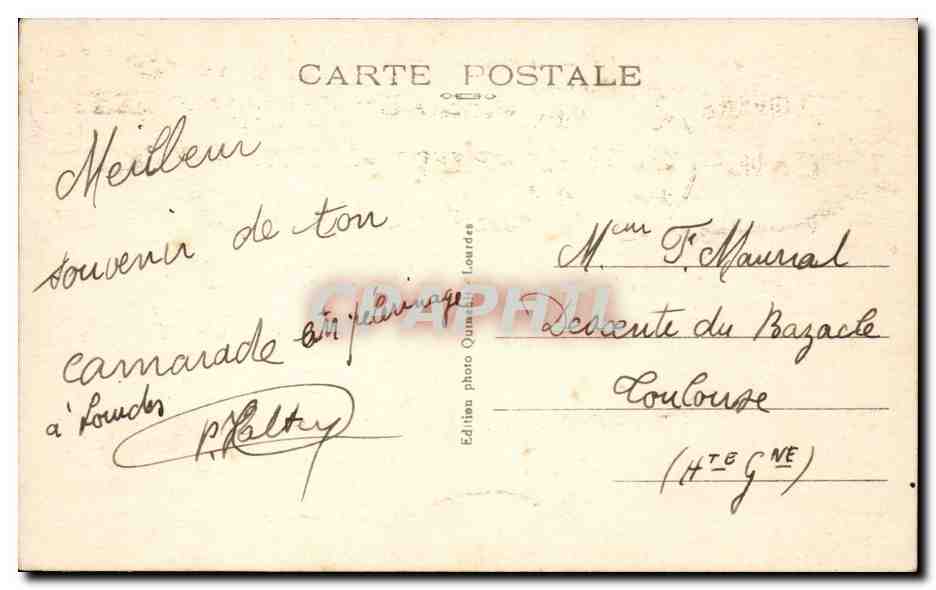 CARTE POSTALE
Meilleur
souvenir de ton
camarade en pélerinage
à Lourdes
Edition photo Lourdes
CRAPHIL
Meur F. Maurial
Descente du Bazacle
Toulouse
(HTE GNE)